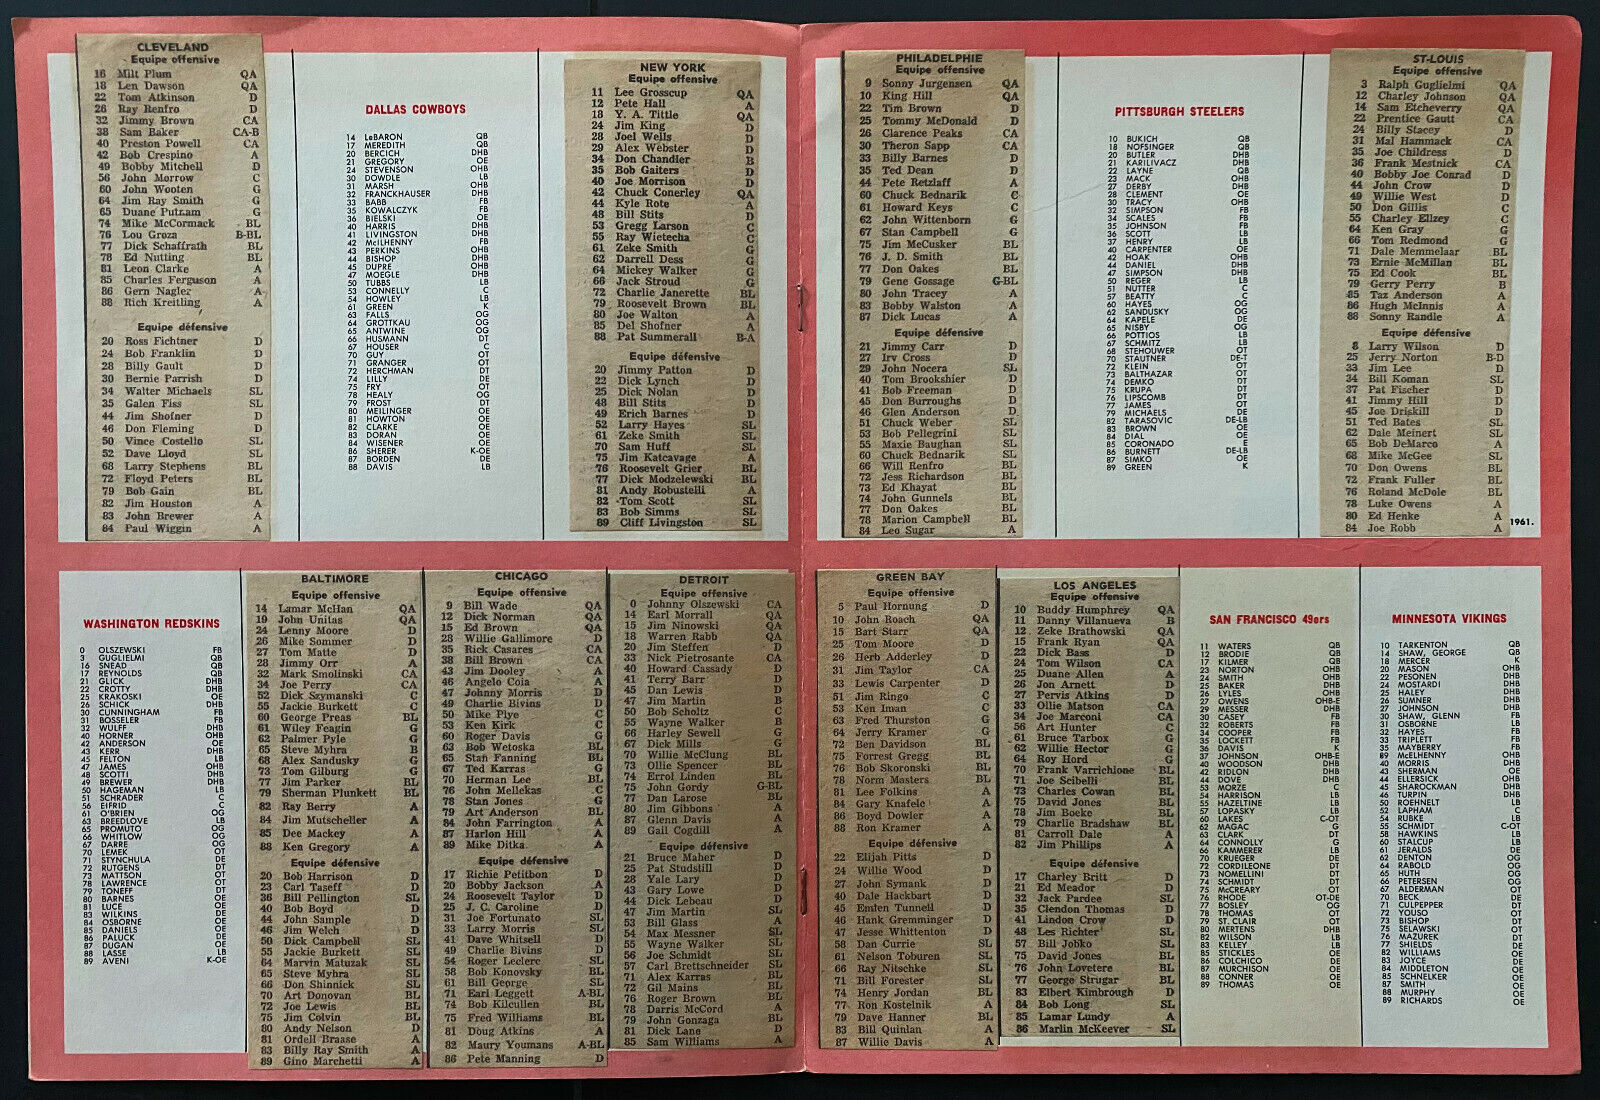 CLEVELAND
Equipe offensive
16 Milt Plum QA
18 Len Dawson QA
22 Tom Atkinson D
26 Ray Renfro D
32 Jimmy Brown CA
38 Sam Baker CA-B
40 Preston Powell CA
42 Bob Crespino A
49 Bobby Mitchell D
56 John Morrow C
60 John Wooten G
64 Jim Ray Smith G
65 Duane Putnam G
74 Mike McCormack BL
76 Lou Groza B-BL
77 Dick Schaffrath BL
78 Ed Nutting BL
81 Leon Clarke A
85 Charles Ferguson A
86 Gern Nagler A
88 Rich Kreitling A
Equipe défensive
20 Ross Fichtner D
24 Bob Franklin D
28 Billy Gault D
30 Bernie Parrish D
34 Walter Michaels SL
35 Galen Fiss SL
44 Jim Shofner D
46 Don Fleming D
50 Vince Costello SL
52 Dave Lloyd SL
68 Larry Stephens BL
72 Floyd Peters BL
79 Bob Gain BL
82 Jim Houston A
83 John Brewer A
84 Paul Wiggin A
DALLAS COWBOYS
14 LeBARON QB
17 MEREDITH QB
20 BERCICH DHB
21 GREGORY OE
24 STEVENSON OHB
30 DOWDLE LB
31 MARSH OHB
32 FRANCKHAUSER DHB
33 BABB FB
35 KOWALCZYK FB
36 BIELSKI OE
40 HARRIS DHB
41 LIVINGSTON DHB
42 McILHENNY FB
43 PERKINS OHB
44 BISHOP DHB
45 DUPRE OHB
47 MOEGLE DHB
50 TUBBS LB
53 CONNELLY C
54 HOWLEY LB
61 GREEN K
63 FALLS OG
64 GROTTKAU OG
65 ANTWINE OG
66 HUSMANN DT
67 HOUSER C
70 GUY OT
71 GRANGER OT
72 HERCHMAN DT
74 LILLY DE
75 FRY OT
78 HEALY OG
79 FROST DT
80 MEILINGER OE
81 HOWTON OE
82 CLARKE OE
83 DORAN OE
84 WISENER OE
86 SHERER K-OE
87 BORDEN DE
88 DAVIS LB
NEW YORK
Equipe offensive
11 Lee Grosscup QA
12 Pete Hall A
18 Y. A. Tittle QA
24 Jim King D
28 Joel Wells D
29 Alex Webster D
34 Don Chandler B
35 Bob Gaiters D
40 Joe Morrison D
42 Chuck Conerley QA
44 Kyle Rote A
48 Bill Stits D
53 Gregg Larson C
55 Ray Wietecha C
61 Zeke Smith G
62 Darrell Dess G
64 Mickey Walker G
66 Jack Stroud G
72 Charlie Janerette BL
79 Roosevelt Brown BL
80 Joe Walton A
85 Del Shofner A
88 Pat Summerall B-A
Equipe défensive
20 Jimmy Patton D
22 Dick Lynch D
25 Dick Nolan D
48 Bill Stits D
49 Erich Barnes D
52 Larry Hayes SL
61 Zeke Smith SL
70 Sam Huff SL
75 Jim Katcavage A
76 Roosevelt Grier BL
77 Dick Modzelewski BL
81 Andy Robustelli A
82 Tom Scott SL
83 Bob Simms SL
89 Cliff Livingston SL
PHILADELPHIE
Equipe offensive
9 Sonny Jurgensen QA
10 King Hill QA
22 Tim Brown D
25 Tommy McDonald D
26 Clarence Peaks CA
30 Theron Sapp CA
33 Billy Barnes D
35 Ted Dean D
44 Pete Retzlaff A
60 Chuck Bednarik C
61 Howard Keys C
62 John Wittenborn G
67 Stan Campbell G
75 Jim McCusker BL
76 J. D. Smith BL
77 Don Oakes BL
79 Gene Gossage G-BL
80 John Tracey A
83 Bobby Walston A
87 Dick Lucas A
Equipe défensive
21 Jimmy Carr D
27 Irv Cross D
29 John Nocera SL
40 Tom Brookshier D
41 Bob Freeman D
45 Don Burroughs D
46 Glen Anderson D
51 Chuck Weber SL
53 Bob Pellegrini SL
55 Maxie Baughan SL
60 Chuck Bednarik SL
66 Will Renfro BL
72 Jess Richardson BL
73 Ed Khayat BL
74 John Gunnels BL
77 Don Oakes BL
78 Marion Campbell BL
84 Leo Sugar A
PITTSBURGH STEELERS
10 BUKICH QB
18 NOFSINGER QB
20 BUTLER DHB
21 KARILIVACZ DHB
22 LAYNE QB
23 MACK OHB
27 DERBY DHB
28 CLEMENT OE
30 TRACY OHB
32 SIMPSON FB
34 SCALES FB
35 JOHNSON FB
36 SCOTT LB
37 HENRY LB
40 CARPENTER OE
42 HOAK OHB
44 DANIEL DHB
47 SIMPSON DHB
50 REGER LB
51 NUTTER C
57 BEATTY C
60 HAYES OG
62 SANDUSKY OG
64 KAPELE DE
65 NISBY OG
66 POTTIOS LB
67 SCHMITZ LB
68 STEHOUWER OT
70 STAUTNER DE-T
72 KLEIN OT
73 BALTHAZAR OT
74 DEMKO DT
75 KRUPA DT
76 LIPSCOMB DT
77 JAMES OT
79 MICHAELS DE
82 TARASOVIC DE-LB
83 BROWN OE
84 DIAL OE
85 CORONADO E
86 BURNETT DE-LB
87 SIMKO OE
89 GREEN K
ST-LOUIS
Equipe offensive
3 Ralph Guglielmi QA
12 Charley Johnson QA
14 Sam Etcheverry QA
22 Prentice Gautt CA
24 Billy Stacey D
31 Mal Hammack CA
35 Joe Childress D
36 Frank Mestnick CA
40 Bobby Joe Conrad D
44 John Crow D
49 Willie West D
50 Don Gillis C
55 Charley Ellzey C
64 Ken Gray G
66 Tom Redmond G
71 Dale Memmelaar BL
73 Ernie McMillan BL
75 Ed Cook BL
79 Gerry Perry B
85 Taz Anderson A
86 Hugh McInnis A
88 Sonny Randle A
Equipe défensive
8 Larry Wilson D
25 Jerry Norton B-D
33 Jim Lee D
34 Bill Koman SL
37 Pat Fischer D
41 Jimmy Hill D
45 Joe Driskill D
51 Ted Bates SL
62 Dale Meinert SL
65 Bob DeMarco A
68 Mike McGee SL
70 Don Owens BL
72 Frank Fuller BL
76 Roland McDole BL
78 Luke Owens A
80 Ed Henke A
84 Joe Robb A
1961.
WASHINGTON REDSKINS
0 OLSZEWSKI FB
3 GUGLIELMI QB
16 SNEAD QB
17 REYNOLDS QB
21 GLICK DHB
22 CROTTY DHB
25 KRAKOSKI OE
26 SCHICK DHB
30 CUNNINGHAM FB
31 BOSSELER FB
35 WULFF DHB
40 HORNER OHB
42 ANDERSON OE
43 KERR DHB
45 FELTON LB
47 JAMES OHB
48 SCOTTI DHB
49 BREWER DHB
50 HAGEMAN LB
51 SCHRADER C
56 EIFRID C
61 O'BRIEN OG
63 BREEDLOVE LB
65 PROMUTO OG
66 WHITLOW OG
67 DARRE OG
70 LEMEK OT
71 STYNCHULA DE
72 RUTGENS DT
73 MATTSON OT
78 LAWRENCE OT
79 TONEFF DT
80 BARNES OE
81 LUCE OE
83 WILKINS DE
84 OSBORNE OE
85 DANIELS OE
86 PALUCK DE
87 DUGAN OE
88 LASSE LB
89 AVENI K-OE
BALTIMORE
Equipe offensive
14 Lamar McHan QA
19 John Unitas QA
24 Lenny Moore D
26 Mike Sommer D
27 Tom Matte D
28 Jimmy Orr A
32 Mark Smolinski CA
34 Joe Perry CA
52 Dick Szymanski C
55 Jackie Burkett C
60 George Preas BL
61 Wiley Feagin G
62 Palmer Pyle G
65 Steve Myhra B
68 Alex Sandusky G
73 Tom Gilburg G
77 Jim Parker BL
79 Sherman Plunkett BL
82 Ray Berry A
84 Jim Mutscheller A
85 Dee Mackey A
88 Ken Gregory A
Equipe défensive
20 Bob Harrison D
23 Carl Taseff D
36 Bill Pellington SL
40 Bob Boyd D
44 John Sample D
46 Jim Welch D
50 Dick Campbell SL
55 Jackie Burkett SL
64 Marvin Matuzak SL
65 Steve Myhra SL
66 Don Shinnick SL
70 Art Donovan BL
72 Joe Lewis BL
75 Jim Colvin BL
80 Andy Nelson D
81 Ordell Braase A
83 Billy Ray Smith A
89 Gino Marchetti A
CHICAGO
Equipe offensive
9 Bill Wade QA
12 Dick Norman QA
15 Ed Brown QA
28 Willie Gallimore D
35 Rick Casares CA
38 Bill Brown CA
43 Jim Dooley A
46 Angelo Coia A
47 Johnny Morris D
49 Charlie Bivins D
50 Mike Plye C
53 Ken Kirk C
60 Roger Davis G
63 Bob Wetoska BL
65 Stan Fanning BL
67 Ted Karras G
70 Herman Lee BL
76 John Mellekas C
78 Stan Jones G
79 Art Anderson BL
84 John Farrington A
87 Harlon Hill A
89 Mike Ditka A
Equipe défensive
17 Richie Petitbon D
20 Bobby Jackson A
24 Roosevelt Taylor D
25 J. C. Caroline D
31 Joe Fortunato SL
33 Larry Morris SL
41 Dave Whitsell D
49 Charlie Bivins D
54 Roger Leclerc SL
58 Bob Konovsky BL
61 Bill George SL
71 Earl Leggett A-BL
74 Bob Kilcullen BL
75 Fred Williams BL
81 Doug Atkins A
82 Maury Youmans A-BL
86 Pete Manning D
DETROIT
Equipe offensive
0 Johnny Olszewski CA
14 Earl Morrall QA
15 Jim Ninowski QA
18 Warren Rabb QA
20 Jim Steffen D
33 Nick Pietrosante CA
40 Howard Cassady D
41 Terry Barr D
45 Dan Lewis D
47 Jim Martin B
50 Bob Scholtz C
55 Wayne Walker B
66 Harley Sewell G
67 Dick Mills G
70 Willie McClung BL
73 Ollie Spencer BL
74 Errol Linden BL
75 John Gordy G-BL
77 Dan Larose BL
80 Jim Gibbons A
87 Glenn Davis A
89 Gail Cogdill A
Equipe défensive
21 Bruce Maher D
25 Pat Studstill D
28 Yale Lary D
43 Gary Lowe D
44 Dick Lebeau D
47 Jim Martin SL
53 Bill Glass A
54 Max Messner SL
55 Wayne Walker SL
56 Joe Schmidt SL
57 Carl Brettschneider SL
71 Alex Karras BL
72 Gil Mains BL
76 Roger Brown BL
78 Darris McCord A
79 John Gonzaga BL
81 Dick Lane D
85 Sam Williams A
GREEN BAY
Equipe offensive
5 Paul Hornung D
10 John Roach QA
15 Bart Starr QA
25 Tom Moore D
26 Herb Adderley D
31 Jim Taylor CA
33 Lewis Carpenter D
51 Jim Ringo C
53 Ken Iman C
63 Fred Thurston G
64 Jerry Kramer G
72 Ben Davidson BL
75 Forrest Gregg BL
76 Bob Skoronski BL
78 Norm Masters BL
81 Lee Folkins A
84 Gary Knafelc A
86 Boyd Dowler A
88 Ron Kramer A
Equipe défensive
22 Elijah Pitts D
24 Willie Wood D
27 John Symank D
40 Dale Hackbart D
45 Emlen Tunnell D
46 Hank Gremminger D
47 Jesse Whittenton D
58 Dan Currie SL
61 Nelson Toburen SL
66 Ray Nitschke SL
71 Bill Forester SL
74 Henry Jordan BL
77 Ron Kostelnik A
79 Dave Hanner BL
83 Bill Quinlan A
87 Willie Davis A
LOS ANGELES
Equipe offensive
10 Buddy Humphrey QA
11 Danny Villanueva B
12 Zeke Brathowski QA
15 Frank Ryan QA
22 Dick Bass D
24 Tom Wilson CA
25 Duane Allen A
26 Jon Arnett D
27 Pervis Atkins D
33 Ollie Matson CA
34 Joe Marconi CA
56 Art Hunter C
61 Bruce Tarbox G
62 Willie Hector G
64 Roy Hord G
70 Frank Varrichione BL
71 Joe Scibelli BL
73 Charles Cowan BL
75 David Jones BL
78 Jim Boeke BL
79 Charlie Bradshaw BL
81 Carroll Dale A
82 Jim Phillips A
Equipe défensive
17 Charley Britt D
21 Ed Meador D
32 Jack Pardee SL
35 Clendon Thomas D
41 Lindon Crow D
48 Les Richter SL
57 Bill Jobko SL
75 David Jones BL
76 John Lovetere BL
77 George Strugar BL
83 Elbert Kimbrough D
84 Bob Long SL
85 Lamar Lundy A
86 Marlin McKeever SL
SAN FRANCISCO 49ers
11 WATERS QB
12 BRODIE QB
17 KILMER QB
23 NORTON OHB
24 SMITH OHB
25 BAKER DHB
26 LYLES OHB
27 OWENS OHB-E
29 MESSER DHB
30 CASEY FB
32 ROBERTS FB
34 COOPER FB
35 LOCKETT FB
36 DAVIS K
37 JOHNSON OHB-E
40 WOODSON DHB
42 RIDLON DHB
44 DOVE DHB
53 MORZE C
54 HARRISON LB
55 HAZELTINE LB
57 LOPASKY LB
60 LAKES C-OT
62 MAGAC G
63 CLARK DT
64 CONNOLLY G
66 KAMMERER LB
70 KRUEGER DE
72 CORDILEONE DT
73 NOMELLINI DT
74 SCHMIDT DT
75 McCREARY OT
76 RHODE OT-DE
77 BOSLEY OG
78 THOMAS OT
79 ST. CLAIR OT
80 MERTENS DHB
82 WILSON LB
83 KELLEY LB
85 STICKLES OE
86 COLCHICO DE
87 MURCHISON OE
88 CONNER OE
89 THOMAS OE
MINNESOTA VIKINGS
10 TARKENTON QB
14 SHAW, GEORGE QB
18 MERCER K
20 MASON OHB
22 PESONEN DHB
24 MOSTARDI DHB
25 HALEY DHB
26 SUMNER DHB
27 JOHNSON DHB
30 SHAW, GLENN FB
31 OSBORNE LB
32 HAYES FB
33 TRIPLETT FB
35 MAYBERRY FB
39 McELHENNY OHB
40 MORRIS DHB
43 SHERMAN OE
44 ELLERSICK OHB
45 SHAROCKMAN DHB
46 TURPIN DHB
50 ROEHNELT LB
52 LAPHAM C
54 RUBKE LB
55 SCHMIDT C-OT
58 HAWKINS LB
60 STALCUP LB
61 JERALDS DE
62 DENTON OG
64 RABOLD OG
65 HUTH OG
66 PETERSEN OG
67 ALDERMAN OT
70 BECK DE
71 CULPEPPER DT
72 YOUSO OT
73 BISHOP DT
75 SELAWSKI OT
76 MAZUREK DT
77 SHIELDS DE
82 WILLIAMS OE
83 JOYCE DE
84 MIDDLETON OE
85 SCHNELKER OE
87 SMITH OE
88 MURPHY OE
89 RICHARDS OE